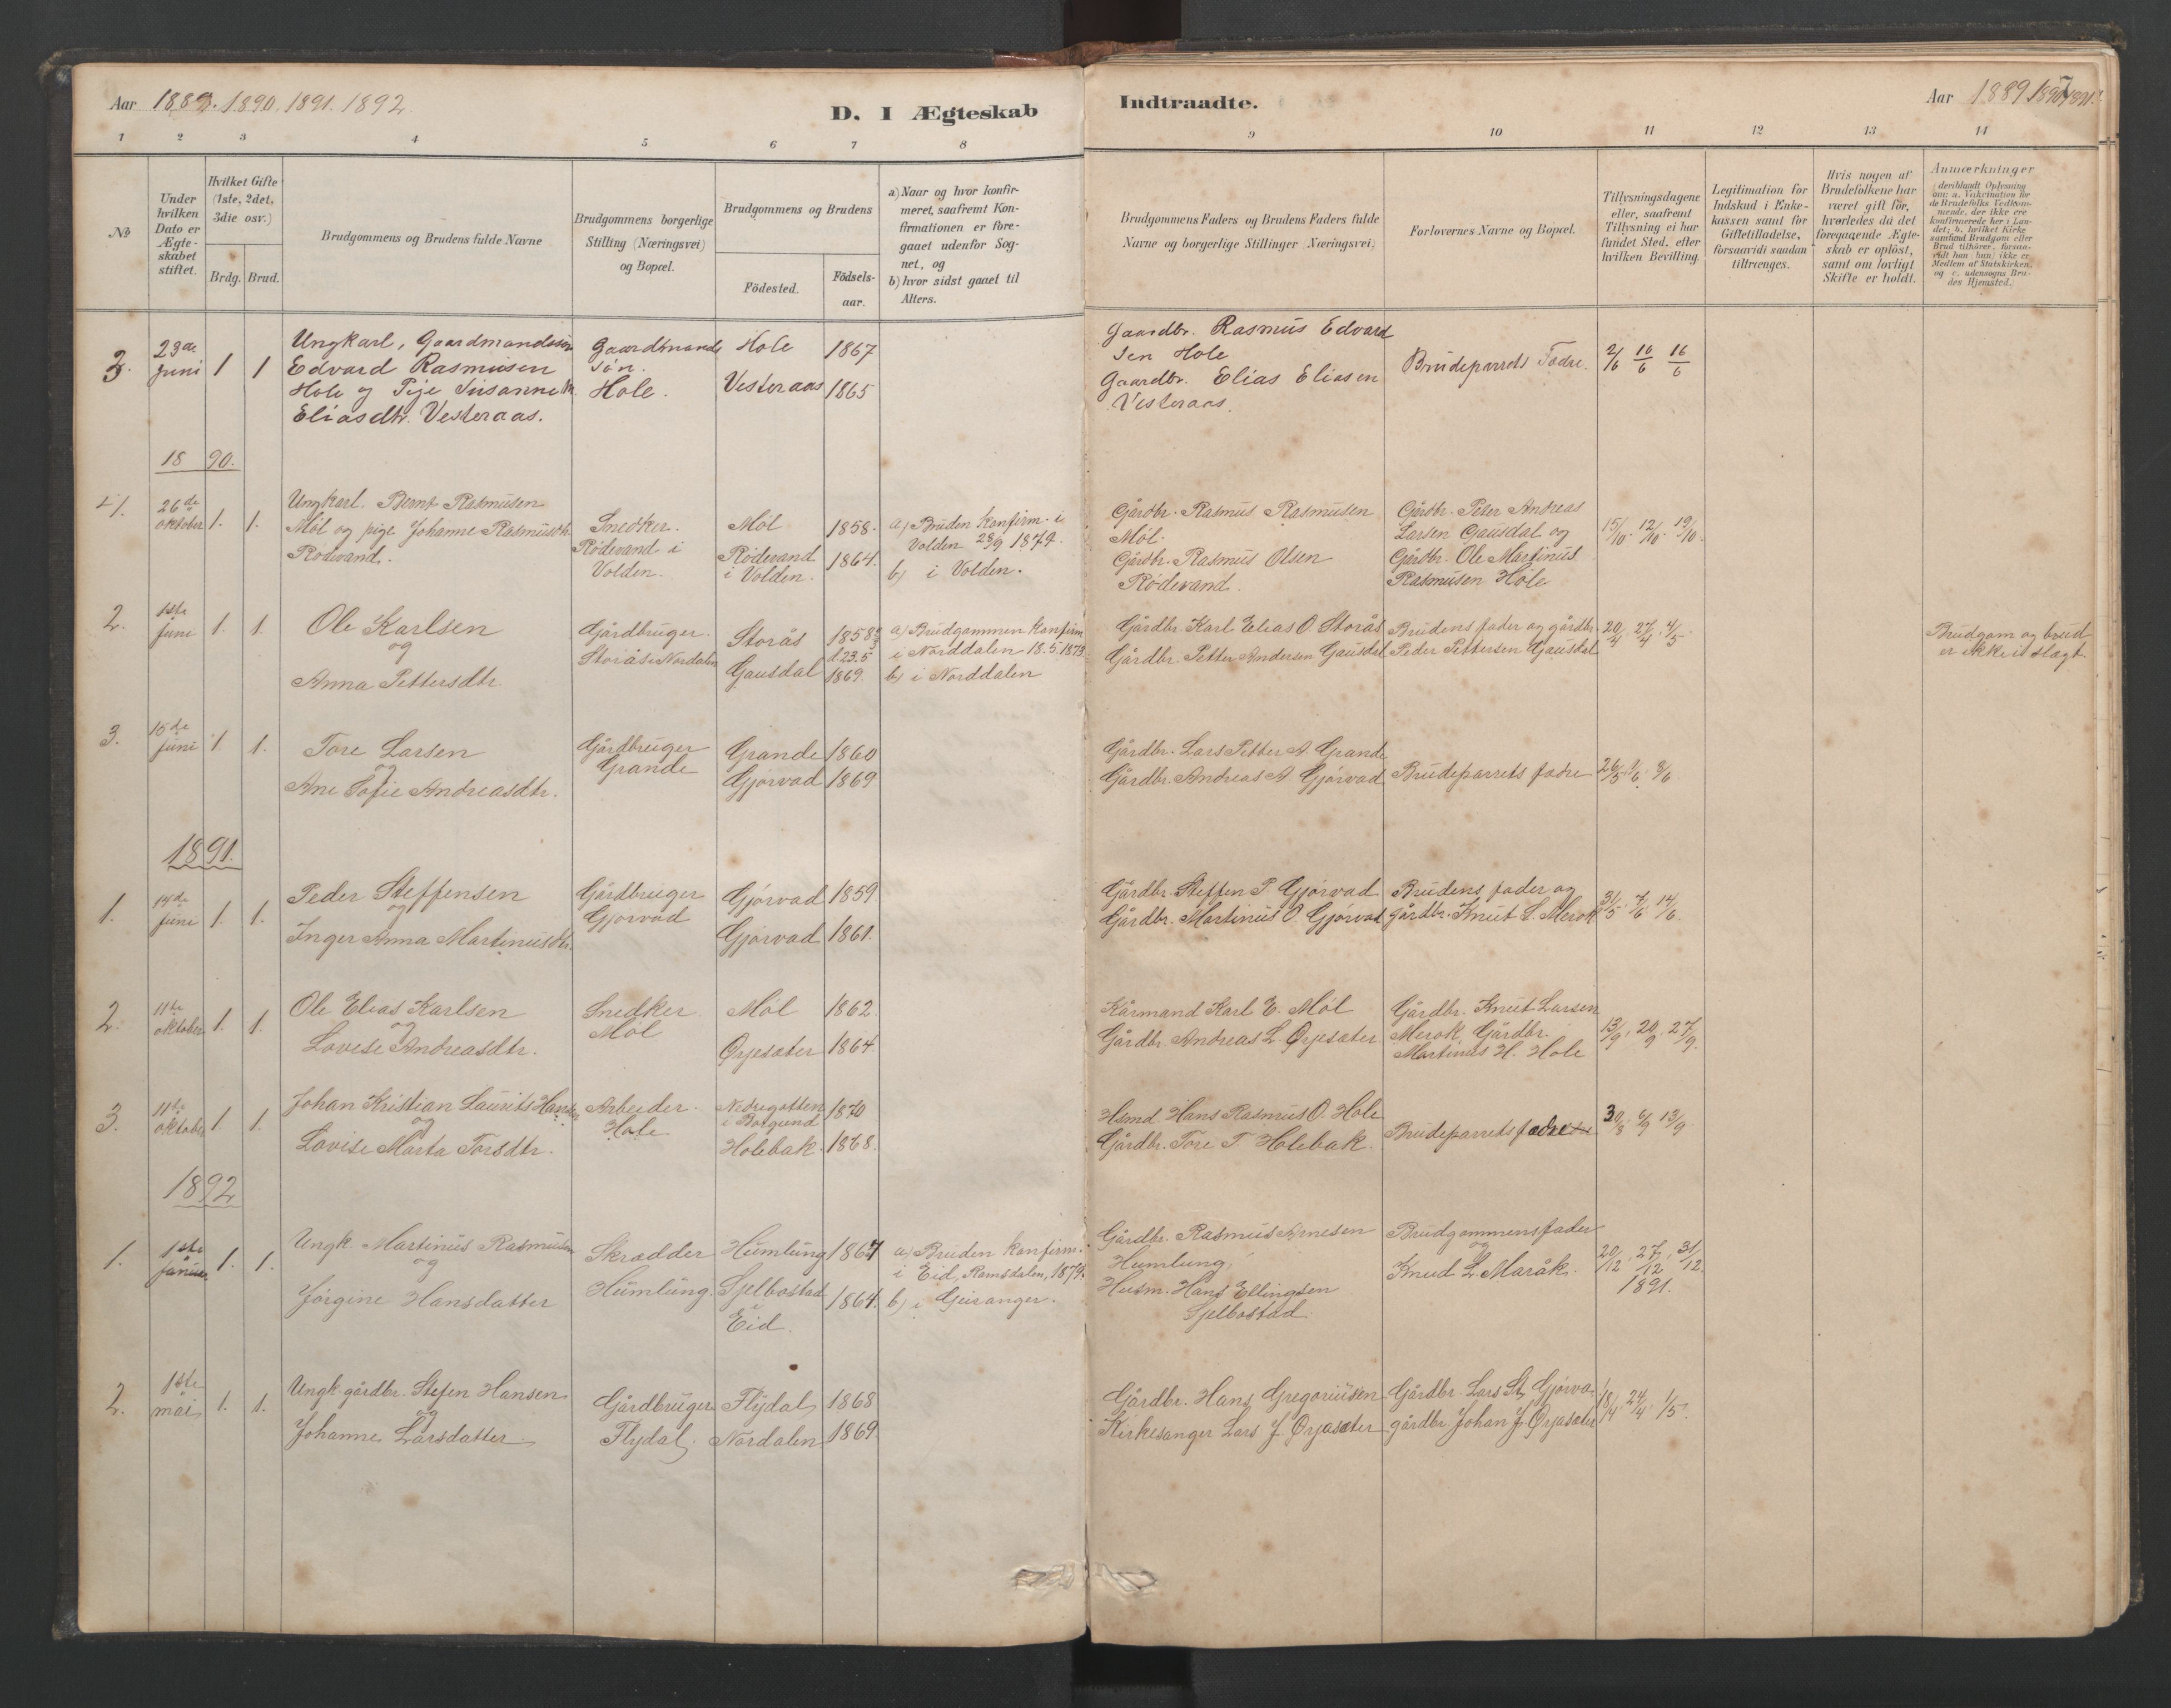 Aar 1889. 1890. 1891. 1892.
D. I Ægteskab
Indtraadte.
Aar 1889 1890 1891.
7
1 2 3 4 5 6 7 8 9 10 11 12 13 14
No
Under
hvilken
Dato er
Ægte-
skabet
stiftet.
Hvilket Gifte
(1ste, 2det,
3die osv.)
Brdg. Brud.
Brudgommens og Brudens fulde Navne
Brudgommens borgerlige
Stilling (Næringsvei)
og Bopæl.
Brudgommens og Brudens
Födested.
Födsels-
aar.
a) Naar og hvor konfir-
meret, saafremt Kon-
firmationen er fore-
gaaet udenfor Sog-
net, og
b) hvor sidst gaaet til
Alters.
Brudgommens Faders og Brudens Faders fulde
Navne og borgerlige Stillinger (Næringsvei)
Forlovernes Navne og Bopæl.
Tillysningsdagene
eller, saafremt
Tillysning ei har
fundet Sted, efter
hvilken Bevilling.
Legitimation for
Indskud i Enke-
kassen samt for
Giftetilladelse,
forsaavidt saadan
tiltrænges.
Hvis nogen af
Brudefolkene har
været gift för,
hvorledes da det
foregaaende Ægte-
skab er oplöst,
samt om lovligt
Skifte er holdt.
Anmærkninger
(deriblandt Oplysning
om: a. Vakcination for
de Brudefolks Vedkom-
mende, der ikke ere
konfirmerede her i Lan-
det; b. hvilket Kirke
samfund Brudgom eller
Brud tilhörer, forsaa-
vidt han (hun) ikke er
Medlem af Statskirken,
og c. udensogns Bru-
des Hjemsted.)
3.
23de
Juni
1 1
Ungkarl, Gaardmandssøn
Edvard Rasmusen
Hole og Pige Susanne M.
Eliasdtr. Vesteraas.
Gaardmands
søn.
Hole.
Hole 1867
Vesteraas 1865
Gaardbr. Rasmus Edvard
sen Hole
Gaardbr. Elias Eliasen
Vesteraas.
Brudeparrets Fædre.
2/6 10/6 16/6
1890.
1.
26de
oktober
1. 1.
Ungkarl. Bernt Rasmusen
Möl og pige Johanne Rasmusdtr.
Rödevand.
Snedker.
Rödevand i
Volden.
Möl 1858.
Rödevand
i Volden. 1864.
a) Bruden konfirm. i
Volden 28/9 1879.
b) i Volden.
Gårdbr. Rasmus Rasmusen
Möl.
Gårdbr. Rasmus Olsen
Rödevand.
Gårdbr. Peter Andreas
Larsen Gausdal og
Gårdbr. Ole Martinus
Rasmusen Hole
15/10. 12/10. 19/10.
2.
1ste
juni
1. 1.
Ole Karlsen
og
Anna Pettersdtr.
Gårdbruger.
Storås i Nordalen
Storås 1858
Gausdal d 23.5
1869.
a) Brudgommen konfirm.
i Norddalen 18.5.1873
b) i Norddalen
Gårdbr. Karl Elias O. Storås
Gårdbr. Petter Andersen Gausdal
Brudens fader og gårdbr.
Peder Pettersen Gausdal
20/4. 27/4. 4/5.
Brudgom og brud
er ikke i slægt.
3.
15de
juni
1. 1.
Tore Larsen
og
Ane Sofie Andreasdtr.
Gårdbruger
Grande
Grande 1860
Gjörvad 1869
Gårdbr. Lars Petter A. Grande
Gårdbr. Andreas A. Gjörvad
Brudeparrets fædre
26/5. 1/6. 8/6
1891.
1.
14de
juni
1. 1.
Peder Steffensen
og
Inger Anna Martinusdtr.
Gårdbruger
Gjörvad
Gjörvad 1859
Gjörvad 1861.
Gårdbr. Steffen P. Gjörvad
Gårdbr. Martinus O. Gjörvad
Brudens fader og
gårdbr. Knut L. Merok
31/5. 7/6. 14/6.
2.
11te
oktober
1. 1.
Ole Elias Karlsen
og
Lovise Andreasdtr.
Snedker.
Möl
Möl 1862
Örjesæter 1864
Kårmand Karl E. Möl
Gårdbr. Andreas L. Örjesæter
Gårdbr. Knut Larsen
Merok, Gårdbr.
Martinus H. Hole
13/9. 20/9. 27/9.
3.
11te
oktober
1. 1.
Johan Kristian Laurits Hansen
og
Lovise Marta Torsdtr.
Arbeider.
Hole
Nedregotten
i Borgund 1870
Holebak. 1868.
Hsmd Hans Rasmus O. Hole
Gårdbr. Tore T. Holebak.
Brudeparrets fædre
30/8 6/9 13/9
1892
1.
1ste
januar
1. 1.
Ungk. Martinus Rasmusen
og
Jörgine Hansdatter
Skrædder
Humlung.
Humlung 1867
Sjelbostad
i 1864.
Eid.
a) Bruden konfirm.
i Eid, Romsdalen, 1879.
b) i Geiranger.
Gårdbr. Rasmus Arnesen
Humlung,
Husm. Hans Ellingsen
Sjelbostad.
Brudgommens fader
og
Knud L. Maråk.
20/12. 27/12. 31/12.
1891.
2.
1ste
mai
1. 1.
Ungk. gårdbr. Stefen Hansen
og
Johanne Larsdatter
Gårdbruger
Flydal.
Flydal 1868
Nordalen 1869
Gårdbr. Hans Gregoriusen
Kirkesanger Lars J. Örjasæter
Gårdbr. Lars St. Gjörva.
gårdbr. Johan J. Örjasæter
18/4. 24/4. 1/5.